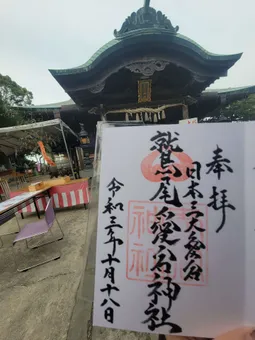 奉拝
日本三大愛宕
鷲尾愛宕神社
令和三年十月十八日